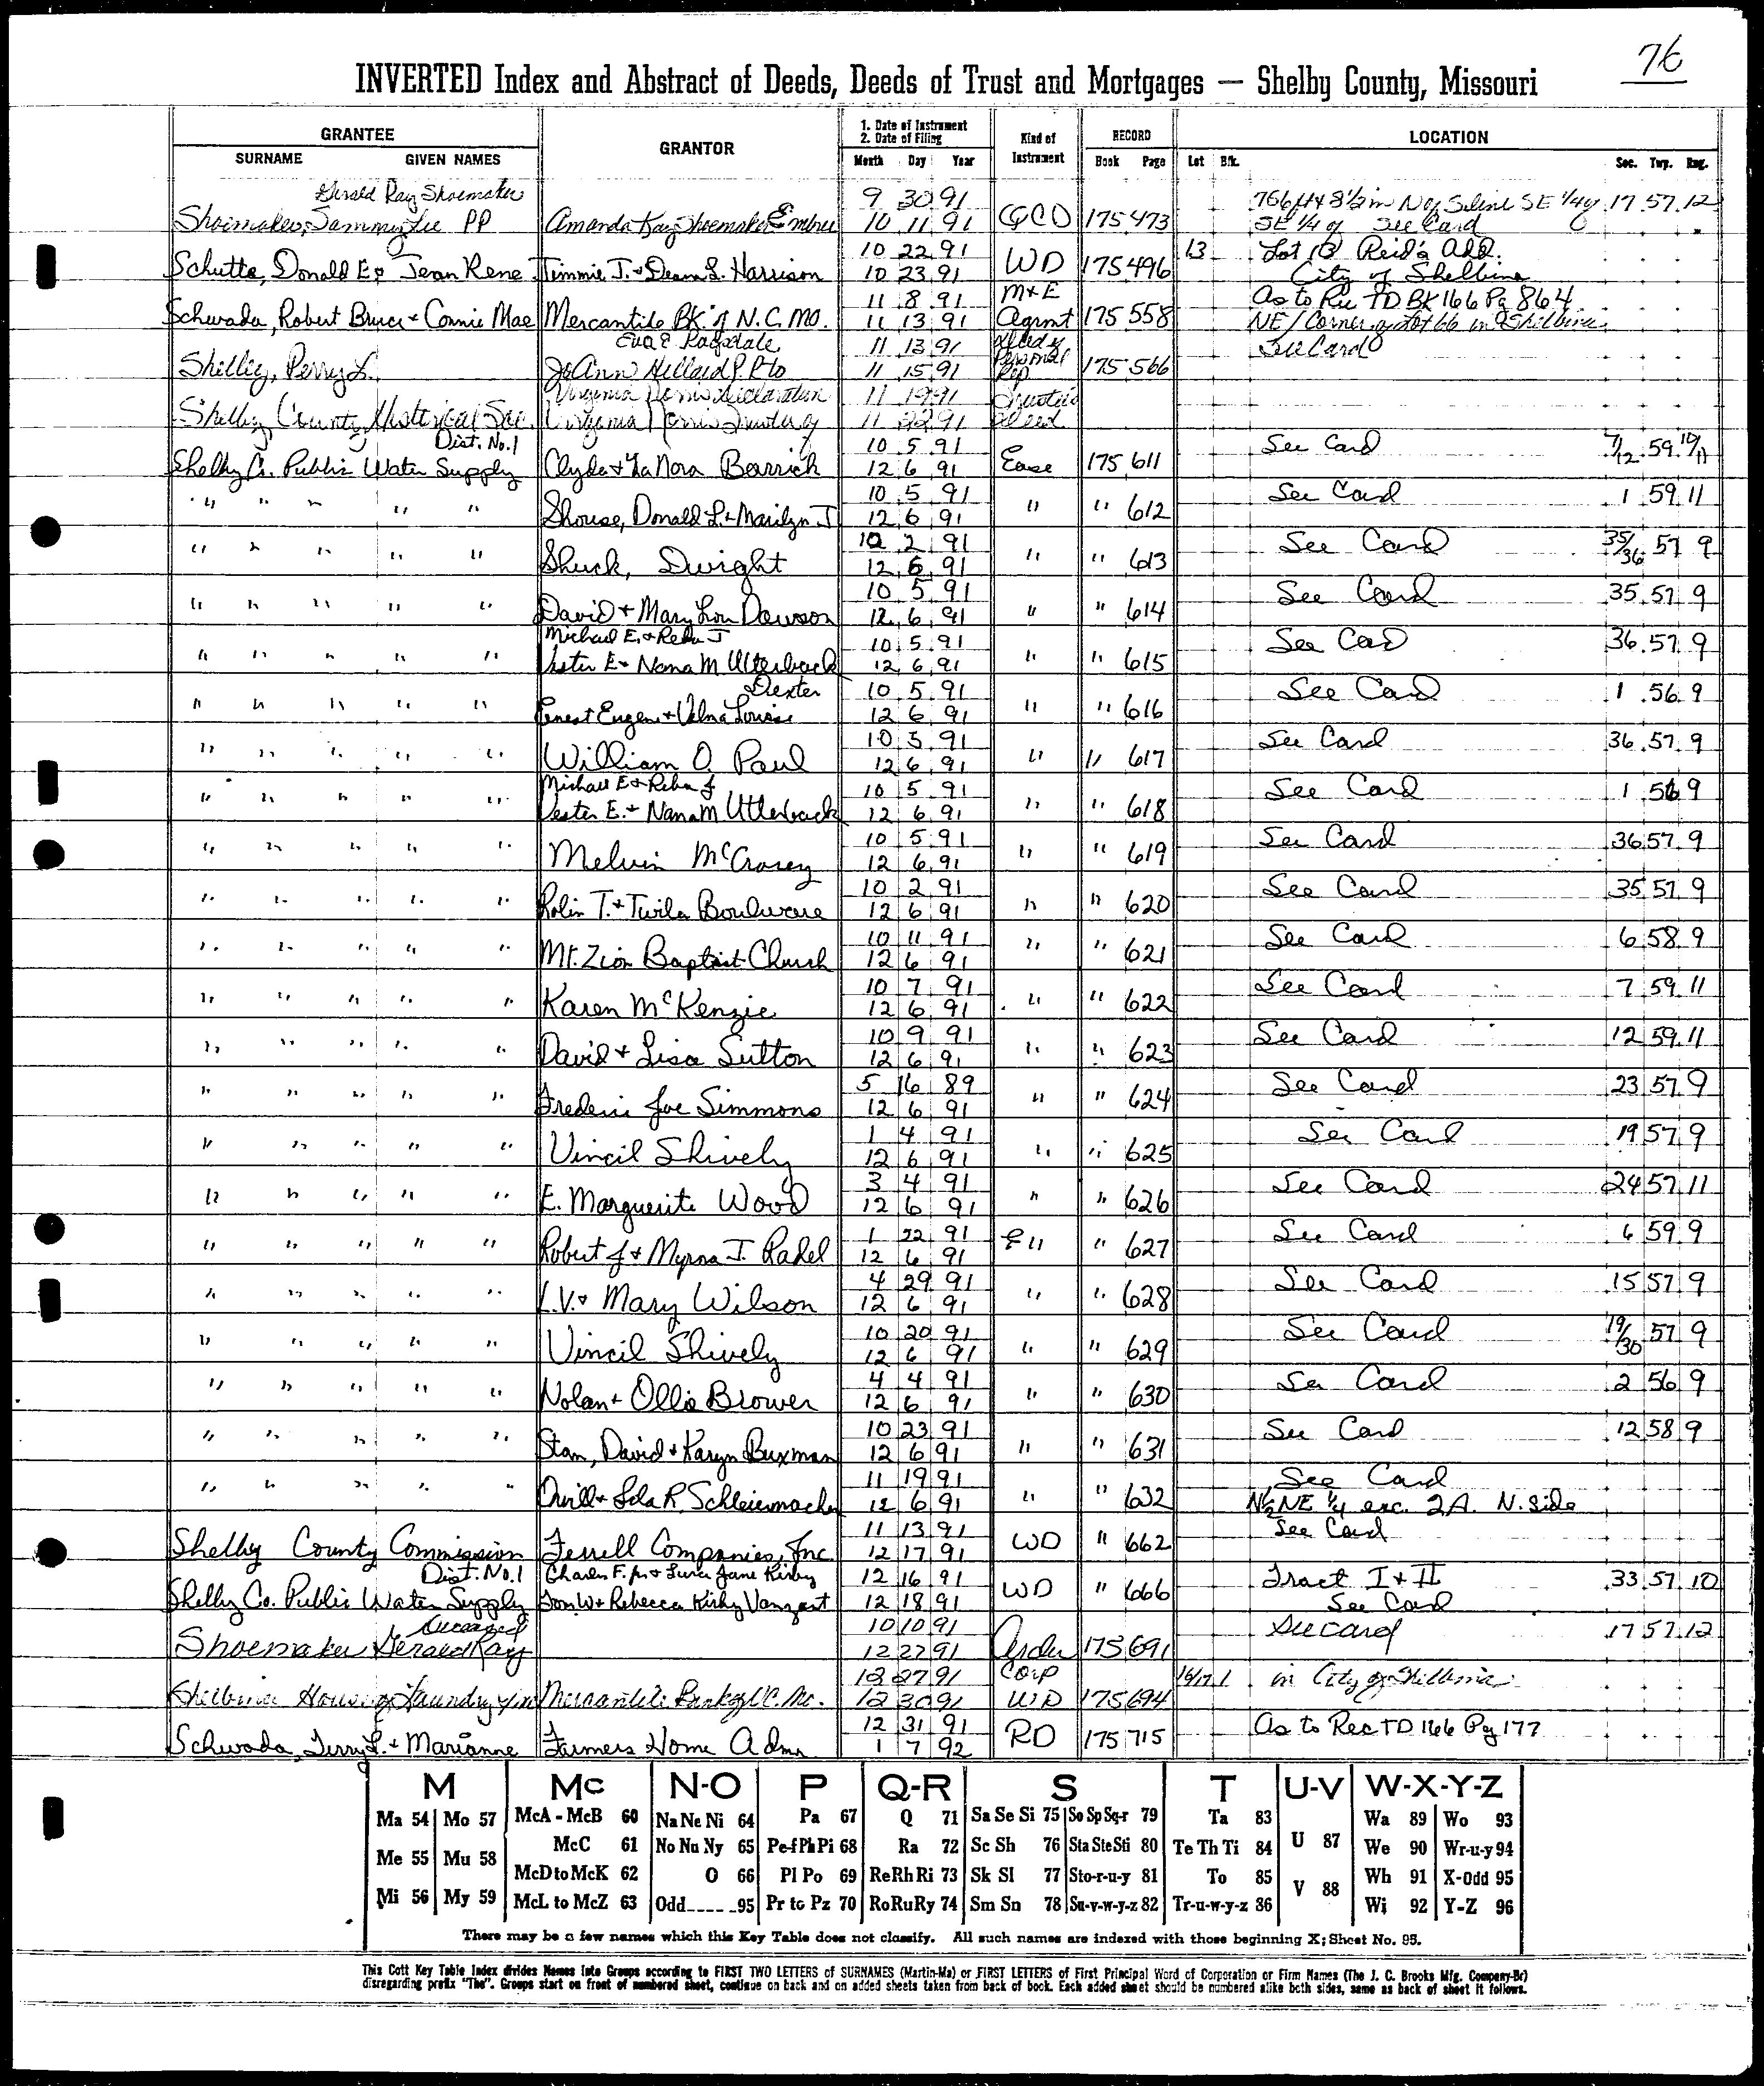 76
INVERTED Index and Abstract of Deeds, Deeds of Trust and Mortgages — Shelby County, Missouri
GRANTEE GRANTOR 1. Date of Instrument 2. Date of Filing Kind of Instrument RECORD LOCATION
SURNAME GIVEN NAMES Month Day Year Book Page Lot Blk. Sec. Twp. Rng.
Gerald Ray Shoemaker 9 30 91
Shoemaker, Sammy Lee PP Amanda Kay Shoemaker Embree 10 11 91 QCD 175 473 SE 1/4 of See Card 17 57 12
10 22 91 13 Lot 13 Reid's Add.
Schutte, Donald E & Jean Rene Timmie J. & Deana L. Harrison 10 23 91 WD 175 496 City of Shelbina
11 8 91 M+E As to Rec TD BK 166 Pg 864
Schwada, Robert Bruce + Connie Mae Mercantile Bk. of N.C. MO. 11 13 91 Agrmt 175 558 NE/Corner of Lot 66 in Shelbina
Eva E Ragsdale 11 13 91 Deed of See Card
Shelley, Perry L. JoAnn Hillard P.R. to 11 15 91 Personal Rep 175 566
Virginia Norris Declaration 11 19 91 Trustee
Shelby County Historical Soc. Virginia Norris Trustee of 11 22 91 Deed
Dist. No. 1 10 5 91 See Card 7/12 59 10/11
Shelby Co. Public Water Supply Clyde + LaNora Barrick 12 6 91 Ease 175 611
" " " " " 10 5 91 See Card 1 59 11
Shouse, Donald L. + Marilyn J 12 6 91 " " 612
" " " " " 10 2 91 See Card 35/36 57 9
Shuck, Dwight 12 6 91 " " 613
" " " " " 10 5 91 See Card 35 57 9
David + Mary Lou Dawson 12 6 91 " " 614
" " " " " Michael E. + Reba J 10 5 91 See Card 36 57 9
Vester E + Nana M Utterback 12 6 91 " " 615
" " " " " Dexter 10 5 91 See Card 1 56 9
Ernest Eugene + Velma Louise 12 6 91 " " 616
" " " " " 10 5 91 See Card 36 57 9
William O. Paul 12 6 91 " " 617
" " " " " Michael E + Reba J 10 5 91 See Card 1 56 9
Vester E. + Nana M Utterback 12 6 91 " " 618
" " " " " 10 5 91 See Card 36 57 9
Melvin McCrary 12 6 91 " " 619
" " " " " 10 2 91 See Card 35 57 9
Rolin T. + Twila Boulware 12 6 91 " " 620
" " " " " 10 11 91 See Card 6 58 9
Mt. Zion Baptist Church 12 6 91 " " 621
" " " " " 10 7 91 See Card 7 59 11
Karen McKenzie 12 6 91 " " 622
" " " " " 10 9 91 See Card 12 59 11
David + Lisa Sutton 12 6 91 " " 623
" " " " " 5 16 89 See Card 23 57 9
Frederic Joe Simmons 12 6 91 " " 624
" " " " " 1 4 91 See Card 19 57 9
Vincil Shively 12 6 91 " " 625
" " " " " 3 4 91 See Card 24 57 11
E. Marguerite Wood 12 6 91 " " 626
" " " " " 1 22 91 See Card 6 59 9
Robert J + Myrna J. Radel 12 6 91 " " 627
" " " " " 4 29 91 See Card 15 57 9
L.V. + Mary Wilson 12 6 91 " " 628
" " " " " 10 20 91 See Card 19/30 57 9
Vincil Shively 12 6 91 " " 629
" " " " " 4 4 91 See Card 2 56 9
Nolan + Ollie Brower 12 6 91 " " 630
" " " " " 10 23 91 See Card 12 58 9
Stan, David + Karyn Buxman 12 6 91 " " 631
" " " " " 11 19 91 See Card
Orvill + Lola R. Schleiermacher 12 6 91 " " 632 N½ NE ¼ exc. 2A. N. Side
11 13 91 See Card
Shelby County Commission Ferrell Companies, Inc. 12 17 91 WD " 662
Dist. No. 1 Charles F. Jr + Jane Kirby 12 16 91 Tract I + II 33 57 10
Shelby Co. Public Water Supply Tom W + Rebecca Kirby Vanzant 12 18 91 WD " 666 See Card
Deceased 10 10 91 See card 17 57 12
Shoemaker Gerald Ray 12 27 91 Order 175 691
12 27 91 Corp 16/17 1 in City of Shelbina
Shelbina House of Laundry Inc Mercantile Bank of N.C. Mo. 12 30 91 WD 175 694
12 31 91 As to Rec TD 166 Pg 177
Schwada, Terry L. + Marianne Farmers Home Adm 1 7 92 RD 175 715
M Mc N-O P Q-R S T U-V W-X-Y-Z
Ma 54 Mo 57 McA - McB 60 Na Ne Ni 64 Pa 67 Q 71 Sa Se Si 75 So Sp Sq-r 79 Ta 83 U 87 Wa 89 Wo 93
Me 55 Mu 58 McC 61 No Nu Ny 65 Pe-f Ph Pi 68 Ra 72 Sc Sh 76 Sta Ste Sti 80 Te Th Ti 84 We 90 Wr-u-y 94
McD to McK 62 O 66 Pl Po 69 Re Rh Ri 73 Sk Sl 77 Sto-r-u-y 81 To 85 V 88 Wh 91 X-Odd 95
Mi 56 My 59 McL to McZ 63 Odd 95 Pr to Pz 70 Ro Ru Ry 74 Sm Sn 78 Su-v-w-y-z 82 Tr-u-w-y-z 86 Wi 92 Y-Z 96
There may be a few names which this Key Table does not classify. All such names are indexed with those beginning X; Sheet No. 95.
This Cott Key Table Index divides Names Into Groups according to FIRST TWO LETTERS of SURNAMES (Martin-Ma) or FIRST LETTERS of First Principal Word of Corporation or Firm Names (The J. C. Brooks Mfg. Company-Br)
disregarding prefix "The". Groups start on front of numbered sheet, continue on back and on added sheets taken from back of book. Each added sheet should be numbered alike both sides, same as back of sheet it follows.